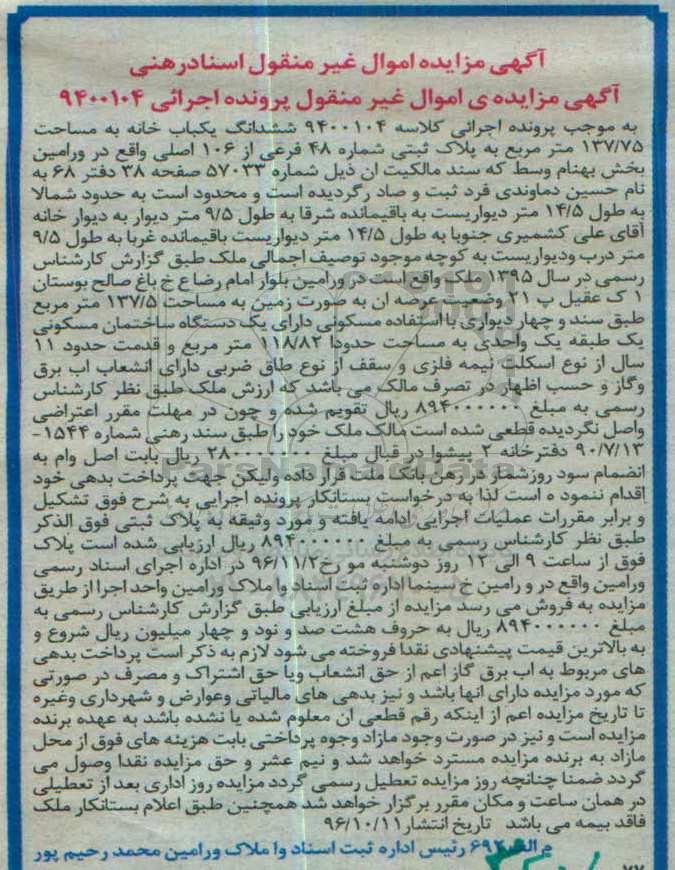 آگهی مزایده اموال غیر منقول اسنادرهنی
آگهی مزایده ی اموال غیر منقول پرونده اجرائی ۹۴۰۰۱۰۴
به موجب پرونده اجرائی کلاسه ۹۴۰۰۱۰۴ ششدانگ یکباب خانه به مساحت
۱۳۷/۷۵ متر مربع به پلاک ثبتی شماره ۴۸ فرعی از ۱۰۶ اصلی واقع در ورامین
بخش بهنام وسط که سند مالکیت ان ذیل شماره ۵۷۰۳۳ صفحه ۳۸ دفتر ۶۸ به
نام حسین دماوندی فرد ثبت و صاد رگردیده است و محدود است به حدود شمالا
به طول ۱۴/۵ متر دیواریست به باقیمانده شرقا به طول ۹/۵ متر دیوار به دیوار خانه
آقای علی کشمیری جنوبا به طول ۱۴/۵ متر دیواریست باقیمانده غربا به طول ۹/۵
متر درب ودیواریست به کوچه موجود توصیف اجمالی ملک طبق گزارش کارشناس
رسمی در سال ۱۳۹۵ ملک واقع است در ورامین بلوار امام رضا ع خ باغ صالح بوستان
۱ ک عقیل پ ۲۱ وضعیت عرصه ان به صورت زمین به مساحت ۱۳۷/۵ متر مربع
طبق سند و چهار دیواری با استفاده مسکونی دارای یک دستگاه ساختمان مسکونی
یک طبقه یک واحدی به مساحت حدودا ۱۱۸/۸۲ متر مربع و قدمت حدود ۱۱
سال از نوع اسکلت نیمه فلزی و سقف از نوع طاق ضربی دارای انشعاب اب برق
وگاز و حسب اظهار در تصرف مالک می باشد که ارزش ملک طبق نظر کارشناس
رسمی به مبلغ ۸۹۴۰۰۰۰۰۰ ریال تقویم شده و چون در مهلت مقرر اعتراضی
واصل نگردیده قطعی شده است مالک ملک خود را طبق سند رهنی شماره ۱۵۴۴-
۹۰/۷/۱۳ دفترخانه ۲ پیشوا در قبال مبلغ ۲۸۰۰۰۰۰۰۰ ریال بابت اصل وام به
انضمام سود روزشمار در رهن بانک ملت قرار داده ولیکن جهت پرداخت بدهی خود
اقدام ننمود ه است لذا به درخواست بستانکار پرونده اجرایی به شرح فوق تشکیل
و برابر مقررات عملیات اجرایی ادامه یافته و مورد وثیقه به پلاک ثبتی فوق الذکر
طبق نظر کارشناس رسمی به مبلغ ۸۹۴۰۰۰۰۰۰ ریال ارزیابی شده است پلاک
فوق از ساعت ۹ الی ۱۲ روز دوشنبه مو رخ ۹۶/۱۱/۲ در اداره اجرای اسناد رسمی
ورامین واقع در و رامین خ سینما اداره ثبت اسناد و املاک ورامین واحد اجرا از طریق
مزایده به فروش می رسد مزایده از مبلغ ارزیابی طبق گزارش کارشناس رسمی به
مبلغ ۸۹۴۰۰۰۰۰۰ ریال به حروف هشت صد و نود و چهار میلیون ریال شروع و
به بالاترین قیمت پیشنهادی نقدا فروخته می شود لازم به ذکر است پرداخت بدهی
های مربوط به اب برق گاز اعم از حق انشعاب ویا حق اشتراک و مصرف در صورتی
که مورد مزایده دارای انها باشد و نیز بدهی های مالیاتی وعوارض و شهرداری وغیره
تا تاریخ مزایده اعم از اینکه رقم قطعی ان معلوم شده یا نشده باشد به عهده برنده
مزایده است و نیز در صورت وجود مازاد وجوه پرداختی بابت هزینه های فوق از محل
مازاد به برنده مزایده مسترد خواهد شد و نیم عشر و حق مزایده نقدا وصول می
گردد ضمنا چنانچه روز مزایده تعطیل رسمی گردد مزایده روز اداری بعد از تعطیلی
در همان ساعت و مکان مقرر برگزار خواهد شد همچنین طبق اعلام بستانکار ملک
فاقد بیمه می باشد تاریخ انتشار ۹۶/۱۰/۱۱
م الف ۶۹۲ رئیس اداره ثبت اسناد وا ملاک ورامین محمد رحیم پور
ParsNamadData